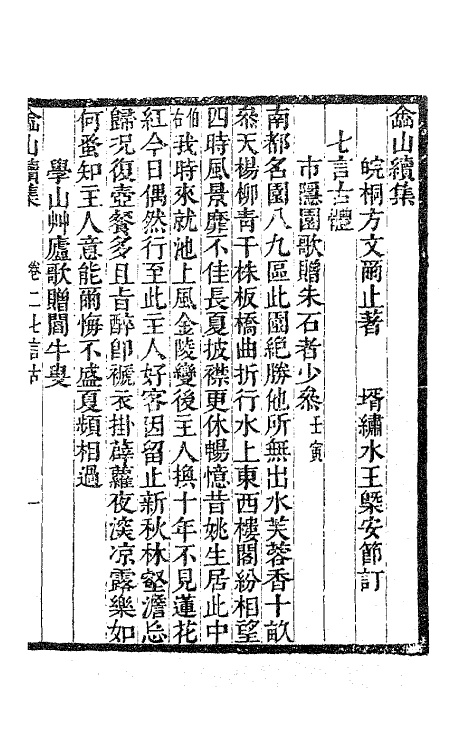 嵞山續集
皖桐方文爾止著　壻繡水王槩安節訂
七言古體
市隱園歌贈朱石者少叅 壬寅
南都名園八九區此園絕勝他所無出水芙蓉香十畝
叅天楊柳青千株板橋曲折行水上東西樓閣紛相望
四時風景靡不佳長夏披襟更休暢憶昔姚生居此中
伯右我時來就池上風金陵變後主人換十年不見蓮花
紅今日偶然行至此主人好客因留止新秋林壑澹忘
歸況復壺餐多且旨醉卽襯衣掛薜蘿夜深凉露樂如
何蚤知主人意能爾悔不盛夏頻相過
學山艸廬歌贈閻牛叟
嵞山續集 卷二七言古 一